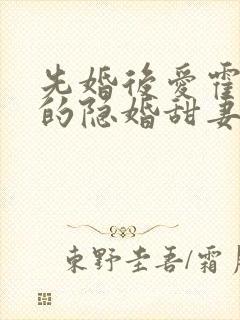 先婚後愛霍
的隐婚甜妻
東野圭吾/霜月